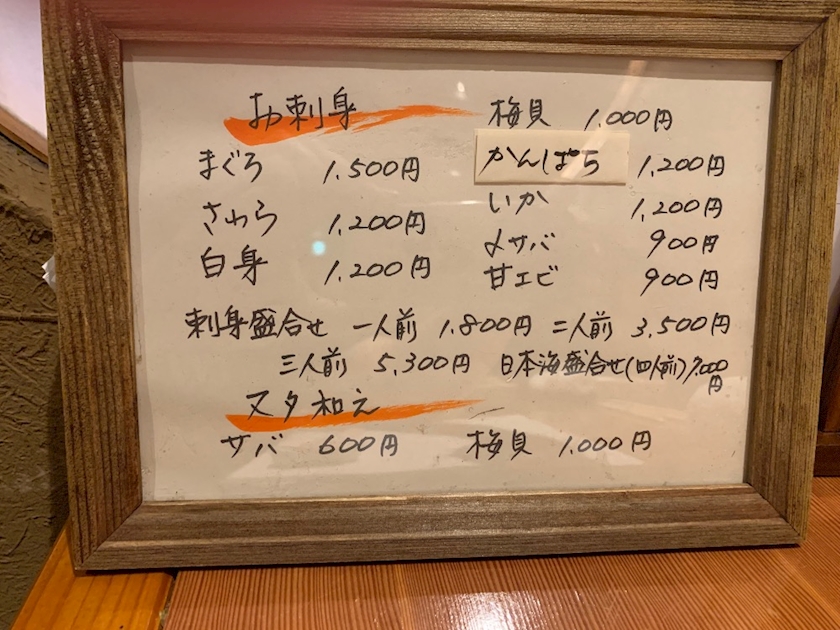 お刺身
まぐろ 1,500円
さわら 1,200円
白身 1,200円
梅貝 1,000円
かんぱち 1,200円
いか 1,200円
〆サバ 900円
甘エビ 900円
刺身盛合せ 一人前 1,800円 二人前 3,500円
三人前 5,300円 日本海盛合せ(四人前)7,000円
ヌタ和え
サバ 600円 梅貝 1,000円